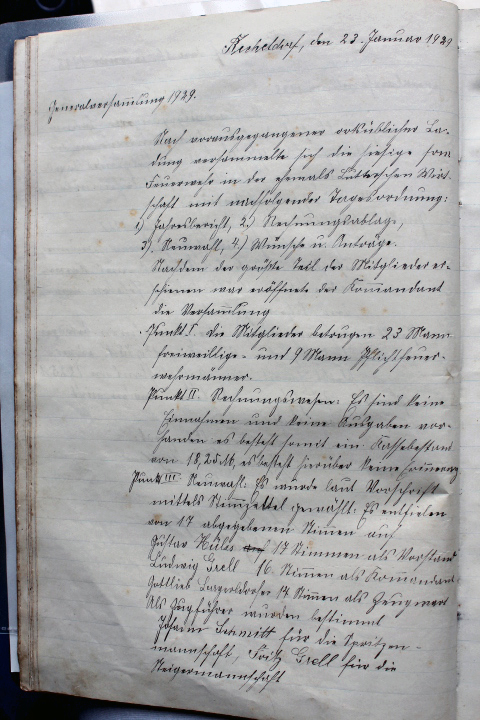 den 23. Januar 1929
Generalversammlung 1929.
Nach vorausgegangener ortsüblicher La-
dung versammelte sich die hiesige frw.
Feuerwehr in der ehemals Lutterschen Wirt-
schaft mit nachfolgender Tagesordnung:
1.) Jahresbericht, 2.) Rechnungsablage,
3.) Neuwahl, 4.) Wünsche u. Anträge.
Nachdem der größte Teil der Mitglieder er-
schienen war eröffnete der Kommandant
die Versammlung
Punkt I. Die Mitglieder betrugen 23 Mann
freiwillige- und 9 Mann Pflichtfeuer-
wehrmänner.
Punkt II. Rechnungswesen: Es sind keine
Einnahmen und keine Ausgaben vor-
handen es besteht somit ein Kassebestand
von 18,25 M, es besteht hierüber keine Erinnerung
Punkt III. Neuwahl: Es wurde laut Vorschrift
mittels Stimmzettel gewählt: Es entfielen
von 17 abgegebenen Stimmen auf
Gustav 17 Stimmen als Vorstand
Ludwig Grell 16. Stimmen als Kommandant
Gottlieb 14 Stimmen als Zeugwart
Als Zugführer wurden bestimmt
Johann Schmitt für die Spritzen-
mannschaft, Fritz Grell für die
Steigermannschaft